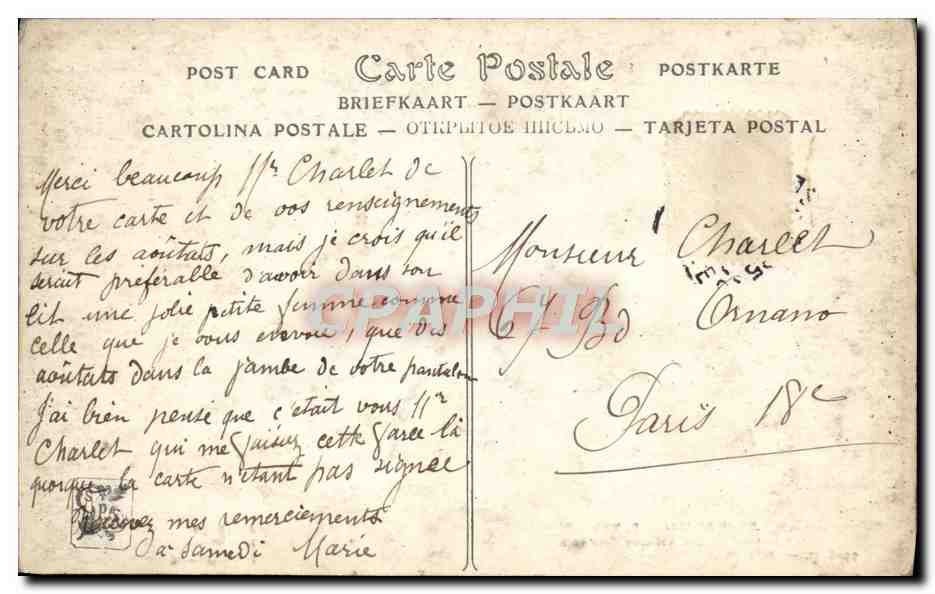 POST CARD Carte Postale POSTKARTE
BRIEFKAART — POSTKAART
CARTOLINA POSTALE — ОТКРЫТОЕ ПИСЬМО — TARJETA POSTAL
Merci beaucoup Mr Charlet de
votre carte et de vos renseignements
sur les aoûtats, mais je crois qu'il
serait préférable d'avoir dans son
lit une jolie petite femme comme
celle que je vous envoie, que des
aoûtats dans la jambe de votre pantalon
J'ai bien pensé que c'était vous Mr
Charlet qui me faisiez cette farce là
quoique la carte n'étant pas signée
Recevez mes remerciements
à samedi Marie
Monsieur Charlet
67 Bd Ornano
Paris 18e
CPAPHIL